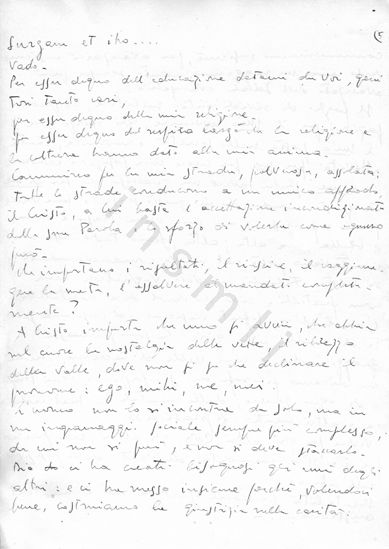 Surgam et ibo....
Vado.
Per esser degno dell'educazione datami da Voi, geni
tori tanto cari,
per esser degno della mia religione.
per esser degno del respiro largo che la religione e
la cultura hanno dato alla mia anima.
Cammino per la mia strada, polverosa, assolata;
tutte le strade conducono a un unico approdo,
il Cristo, a cui basta l'accettazione incondizionata
della sua Parola e lo sforzo di volerla come ognuno
può.
Che importano i risultati, il riuscire, il raggiun-
gere la meta, l'assolvere ai mandati completa-
mente?
A Cristo importa che uno si avvii, che abbia
nel cuore la nostalgia delle vette, il ribrezzo
della valle, dove non si fa che declinare il
pronome: ego, mihi, me, mei.
L'uomo non lo si incontra da solo, ma in
un ingranaggio sociale sempre più complesso,
da cui non si può, e non si deve staccarlo.
Iddio ci ha creati bisognosi gli uni degli
altri: e ci ha messo insieme perchè, volendoci
bene, costruiamo la giustizia nella carità.
insmli